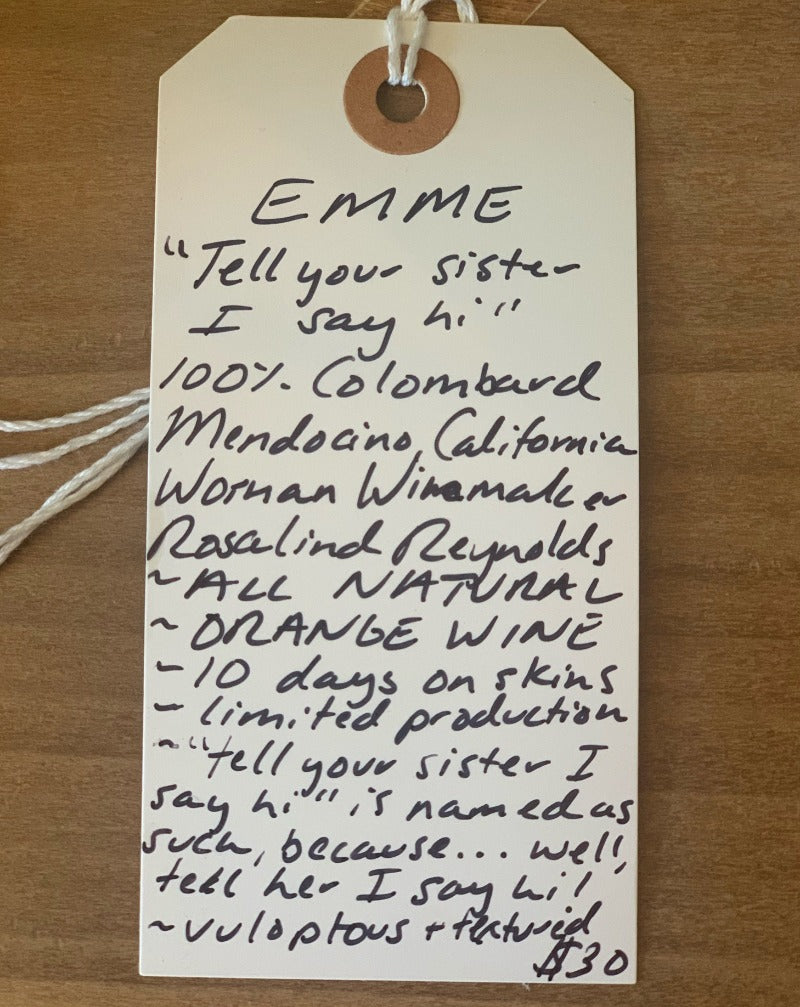 EMME
"Tell your sister
I say hi"
100% Colombard
Mendocino, California
Woman Winemaker
Rosalind Reynolds
~ ALL NATURAL
~ ORANGE WINE
~ 10 days on skins
~ limited production
~ "tell your sister I
say hi" is named as
such, because... well,
tell her I say hi!
~ vuloptous + textured
$30